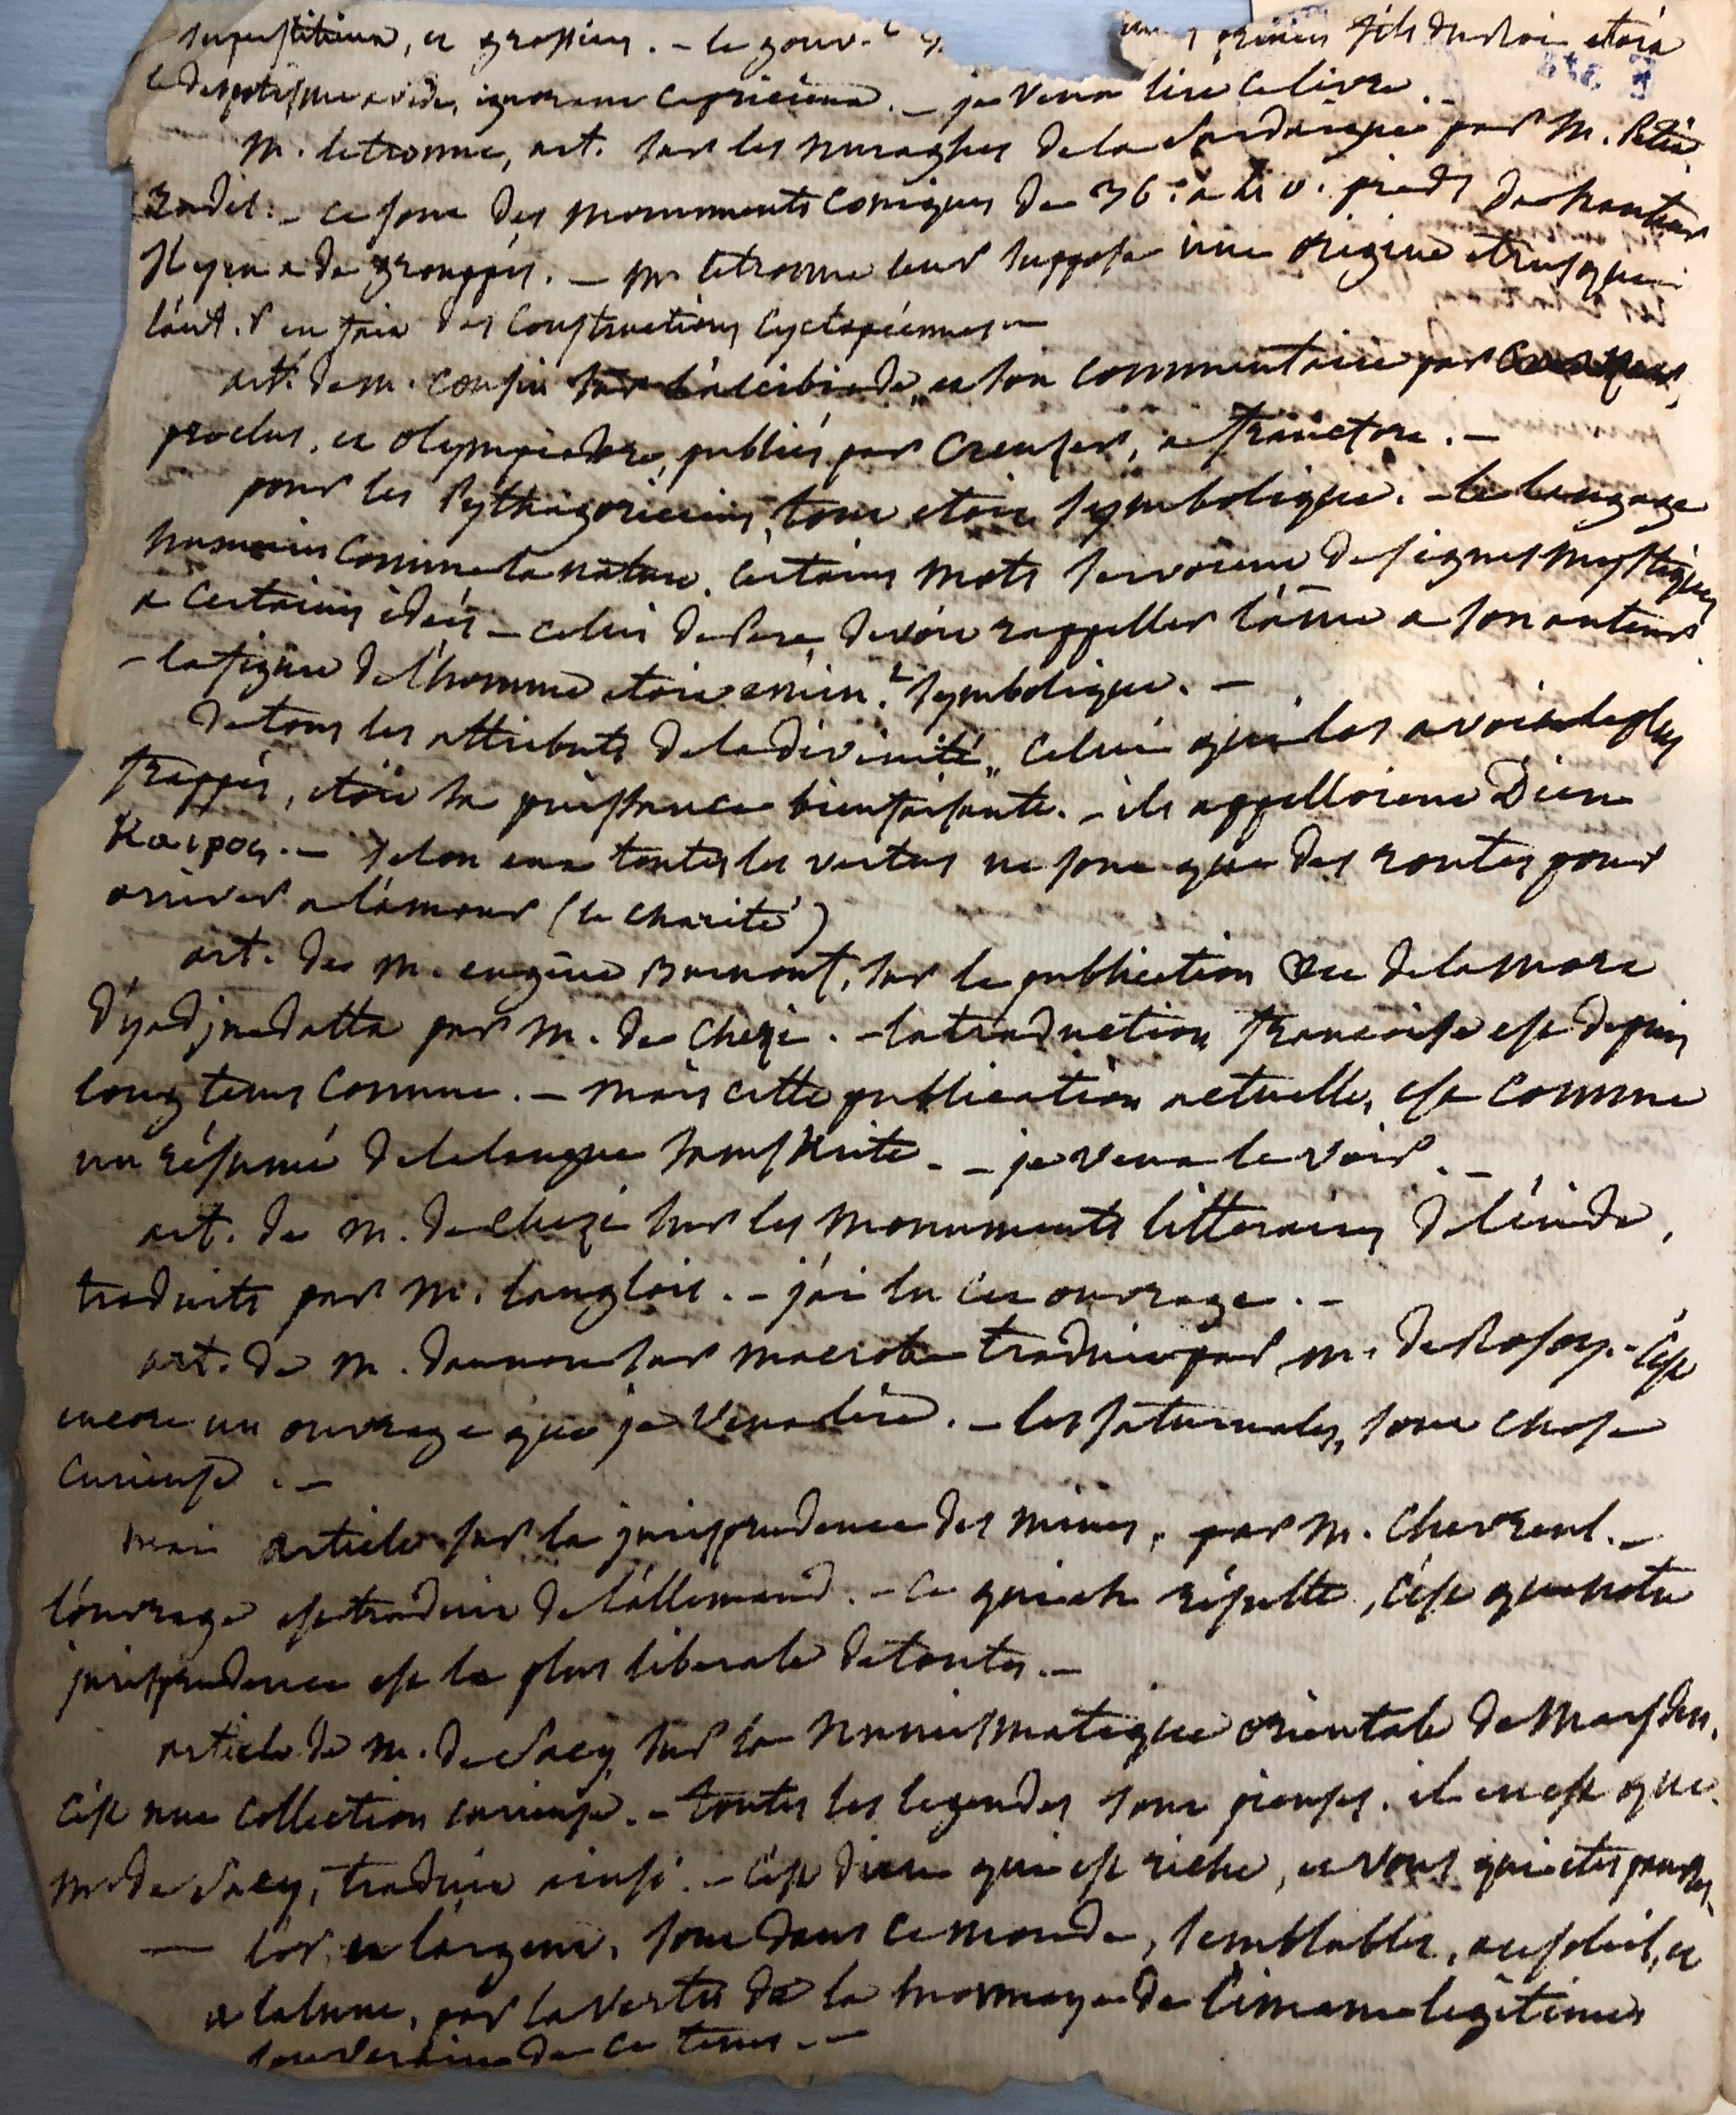 superstitieux, et grossiers. – le gouv.t princes fils du Roi, etoit
despotisme avide, ignorant capricieux. – je veux lire ce livre. –
m. letronne, art. sur les nuraghes de la Sardaigne par M. Petit
Radel. – ce sont des monuments coniques de 36. à pieds de hauteur
Il y en a de grouppés. – m. letronne leur suppose une origine etrusque
l'aut.r en fait des constructions cyclopéennes –
art. de m. cousin sur l'alcibiade, et son commentaire par
proclus, et olympiodore, publiés par Creuser, a francfort. –
pour les Pythagoriciens, tout etoit symbolique. – le langage
humain comme la nature. certains mots servoient de signes mystiques
a certaines idées – celui de Pere, devoit rappeller l'âme a son auteur
– la figure de l'homme etoit émin.t symbolique. –
De tous les attributs de la divinité, celui qui les avoit le plus
frappés, etoit sa puissance bienfaisante. – ils appelloient Dieu
Καιρος. – selon eux toutes les vertus ne sont que des routes pour
arriver a l'amour (la charité)
art. de m. eugène Burnouf, sur la publication de la mort
d'yadjnadatta par m. de chezi. – la traduction françoise est depuis
longtems connue. – mais cette publication actuelle, est comme
un résumé de la langue sanskrite. – je veux le voir. –
art. de m. de chezi sur les monuments litteraires de l'inde,
traduits par m. langlois. – j'ai lu cet ouvrage. –
art. de m. daunou sur macrobe traduit par m. de Rosoy. – c'est
encore un ouvrage que je veux lire. – les saturnales, sont chose
curieuse. –
mai article sur la jurisprudence des mines, par m. Chevreul. –
l'ouvrage est traduit de l'allemand. – ce qui en résulte, c'est que notre
jurisprudence est la plus liberale de toutes. –
article de m. de Sacy, sur la Numismatique orientale de Marsden.
c'est une collection curieuse. – toutes les legendes sont pieuses. il en est que
m. de Sacy, traduit ainsi. – c'est dieu qui est riche, et vous qui etes pauvres.
— l'or, et l'argent, sont dans ce monde, semblables, au soleil, et
a la lune, par la vertu de la monnaye de l'imam legitime
souverain de ce tems. –